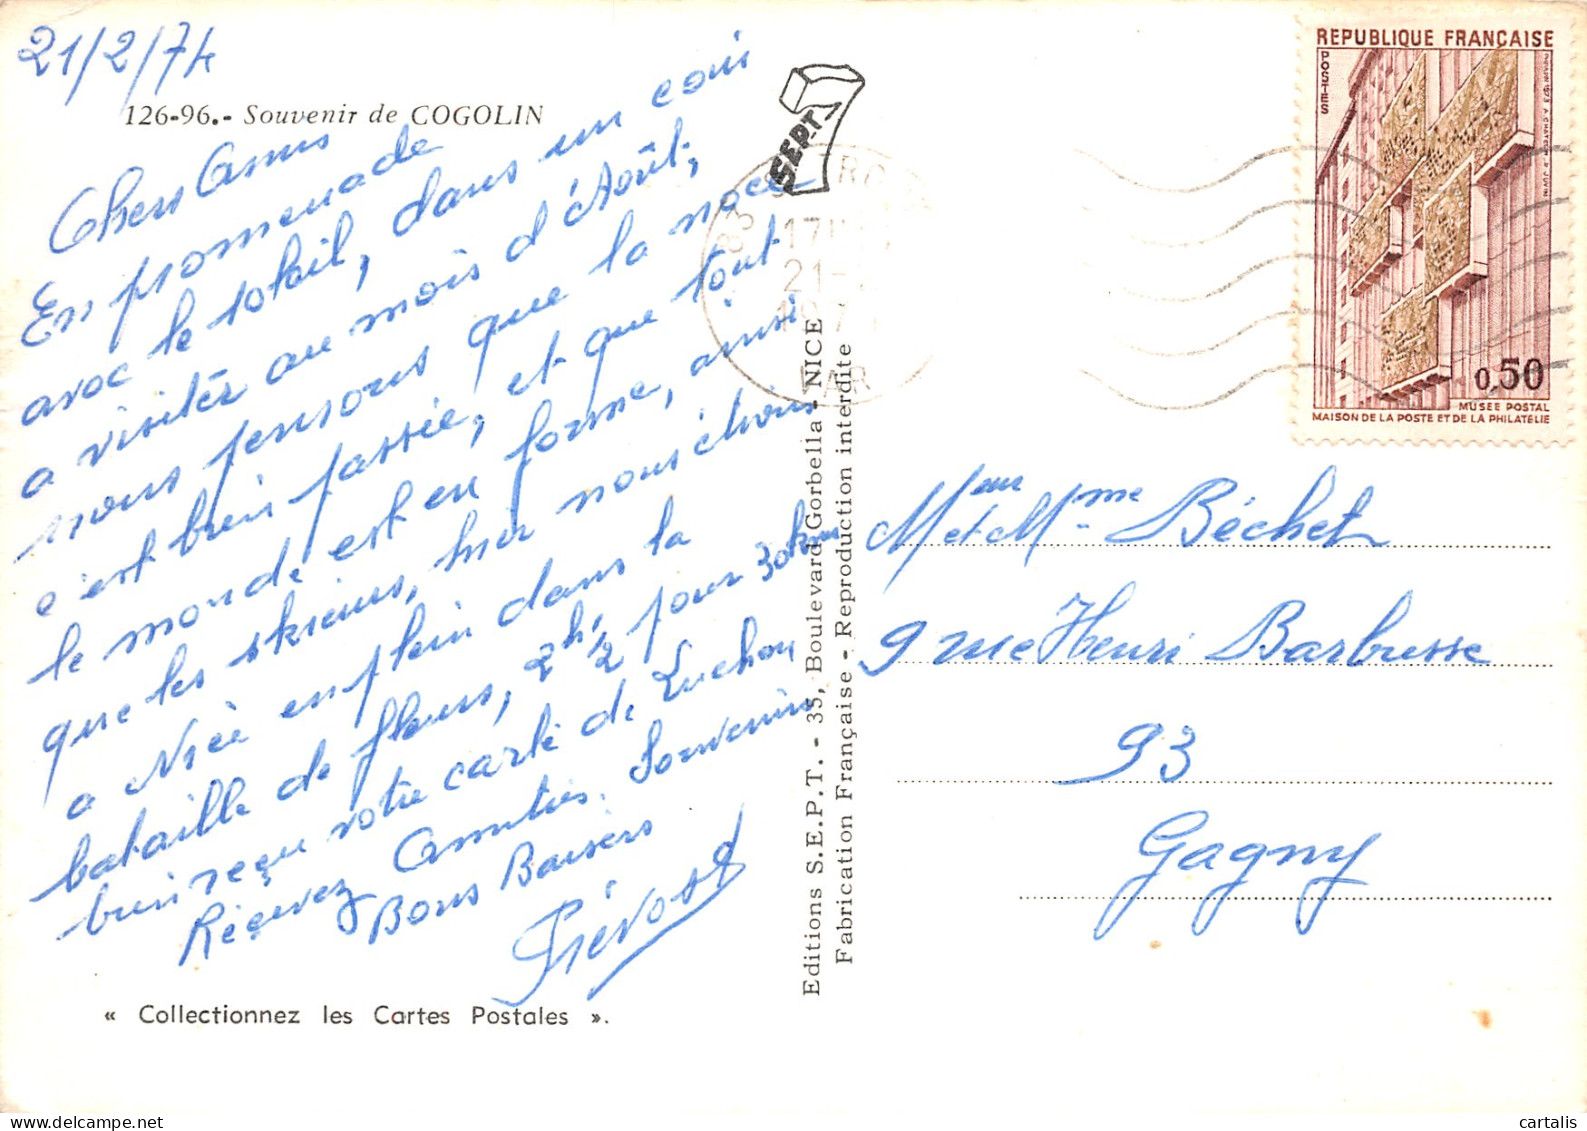 21/2/74
126-96.- Souvenir de COGOLIN
Chers Amis
En promenade
avec le soleil, dans un coin
a visiter au mois d'Août,
nous pensons que la noce
c'est bien passée, et que tout
le monde est en forme, ainsi
que les skieurs, hier nous étions
a Nice en plein dans la
bataille de fleurs, 2h 1/2 pour 30 km
bien reçu votre carte de Luchon
Recevez Amitiés. Souvenirs
Bons Baisers
Prévost
« Collectionnez les Cartes Postales ».
SEPT
83
17H
21-
197
VAR
Editions S.E.P.T. - 35, Boulevard Gorbella - NICE
Fabrication Française - Reproduction interdite
REPUBLIQUE FRANÇAISE
POSTES
0,50
MUSEE POSTAL
MAISON DE LA POSTE ET DE LA PHILATELIE
Meur et Mme Béchet
9 rue Henri Barbusse
93
Gagny
cartalis